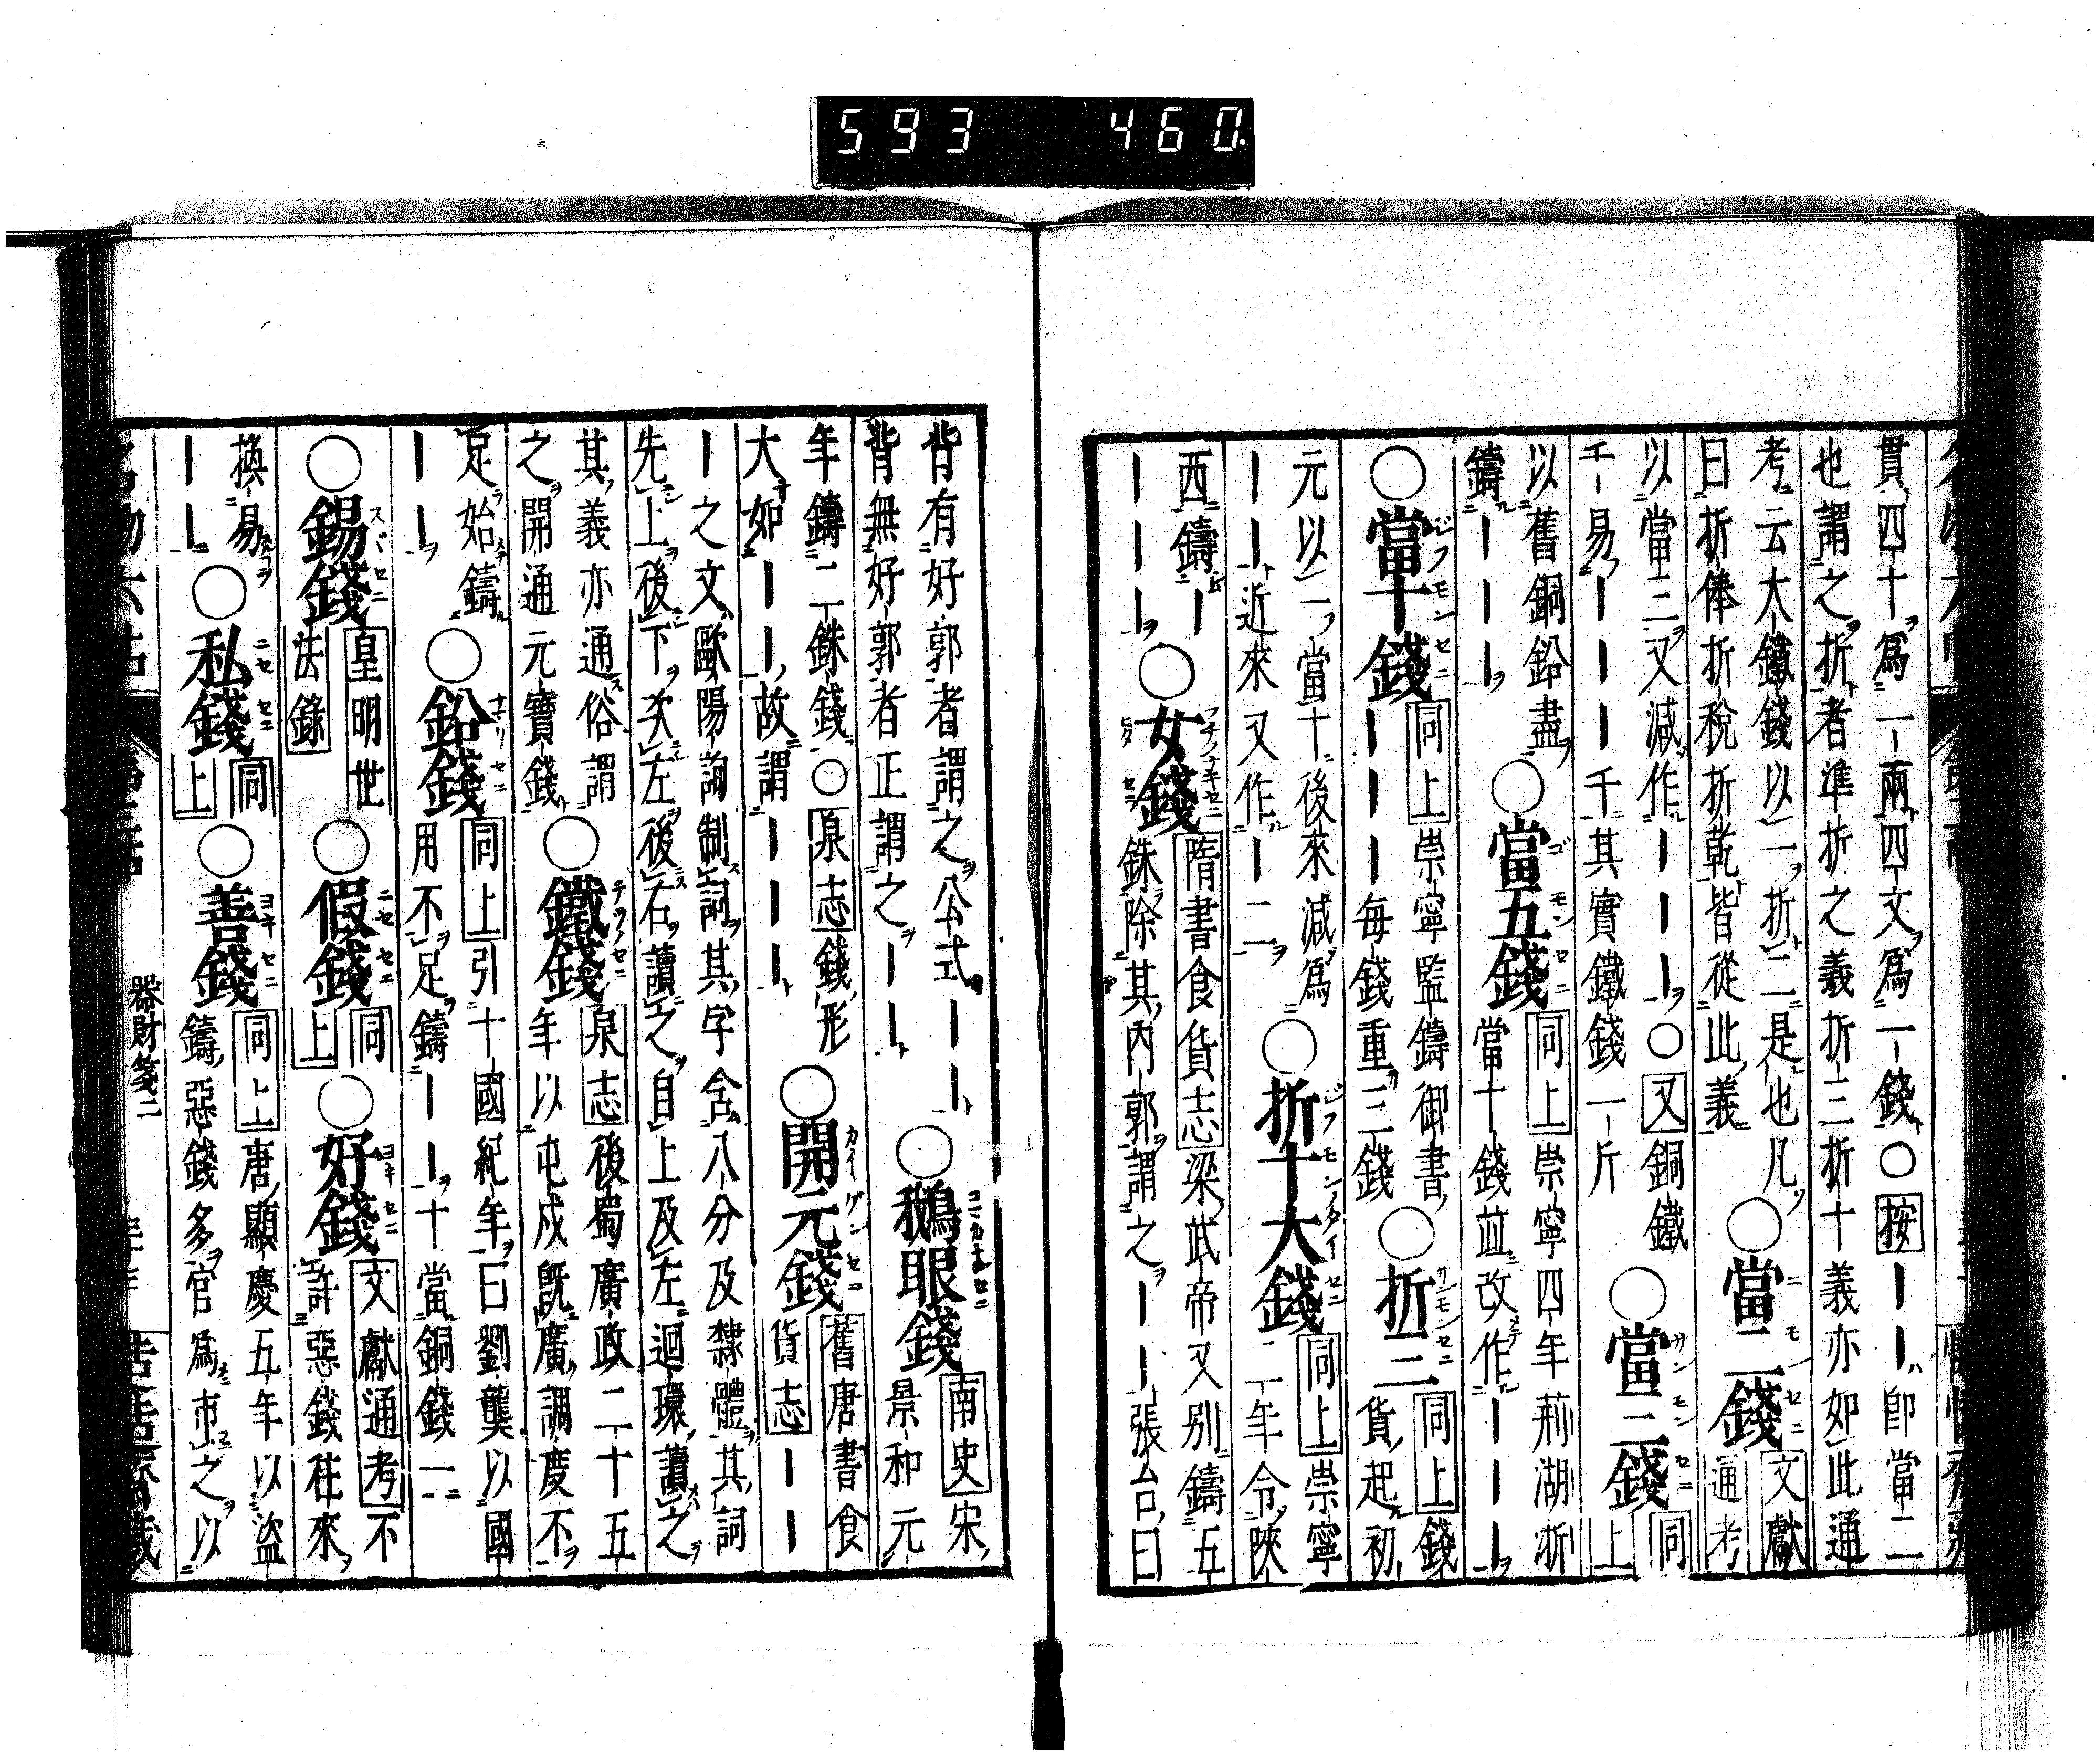 593 460
貫四十爲一兩四文爲一錢○按｜｜即當二
也謂之折者準折之義折三折十義亦如此通
考云大鐵錢以一折二是也凡
曰折俸折税折乾皆從此義
○當二錢
文獻
通考
以當三又減作｜｜｜○又銅鐵
千易｜｜｜｜千其實鐵錢一斤
○當三錢
同
上
以舊銅鉛盡
鑄｜｜｜
○當五錢
同上崇寧四年荊湖浙
當十錢並改作｜｜｜
○當十錢
同上崇寧監鑄御書
｜｜｜每錢重三錢
○折三
同上錢
貨起初
元以一當十後來減爲
｜｜近來又作｜二
○折十大錢
同上崇寧
二年令陝
西鑄｜
｜｜｜
○女錢
隋書食貨志梁武帝又別鑄五
銖除其内郭謂之｜｜張台曰
背有好郭者謂之公式｜｜
背無好郭者正謂之｜｜
○鵝眼錢
南史宋
景和元
年鑄二銖錢○泉志錢形
大如｜｜故謂｜｜｜
○開元錢
舊唐書食
貨志｜｜
｜之文歐陽詢制詞其字含八分及隸體其詞
先上後下次左後右讀之自上及左迴環讀之
其義亦通俗謂
之開通元寶錢
○鐵錢
泉志後蜀廣政二十五
年以屯戍既廣調度不
足始鑄
｜｜
○鉛錢
同上引十國紀年曰劉龑以國
用不足鑄｜｜十當銅錢一
○錫錢
皇明世
法錄
○假錢
同
上
○好錢
文獻通考不
許惡錢往來
換易
｜｜
○私錢
同
上
○善錢
同上唐顯慶五年以盜
鑄惡錢多官爲市之以
器財箋二